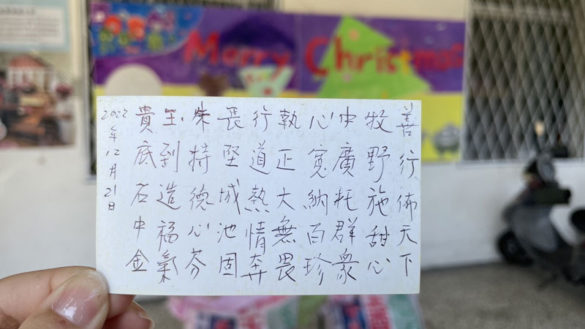 Merry Christmas
善行佈天下
牧野施甜心
中廣托群眾
心寬納百珍
執正大無畏
行道熱情奔
畏堅城池固
持德心芬
到造福氣
貴底石中金
2022年12月21日